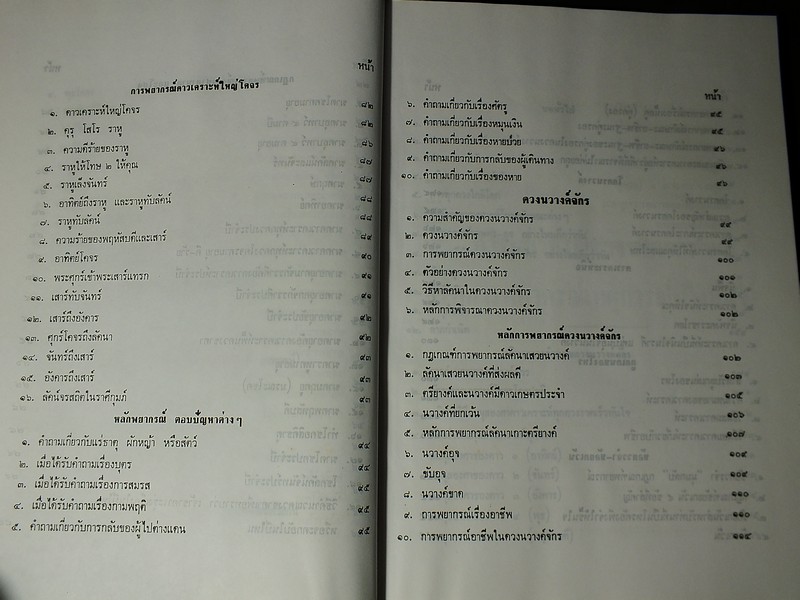 หน้า
การพยากรณ์ดาวเคราะห์ใหญ่โคจร
๑. ดาวเคราะห์ใหญ่โคจร ๘๒
๒. คุรุ โสโร ราหู ๘๒
๓. ความดีร้ายของราหู ๘๖
๔. ราหูให้โทษ ๒ ให้คุณ ๘๗
๕. ราหูเล็งจันทร์ ๘๗
๖. อาทิตย์ถึงราหู และราหูทับลัคน์ ๘๘
๗. ราหูทับลัคน์ ๘๘
๘. ความร้ายของพฤหัสบดีและเสาร์ ๘๙
๙. อาทิตย์โคจร ๙๐
๑๐. พระศุกร์เข้าพระเสาร์แทรก ๙๑
๑๑. เสาร์ทับจันทร์ ๙๑
๑๒. เสาร์ถึงอังคาร ๙๒
๑๓. ศุกร์โคจรถึงลัคนา ๙๒
๑๔. จันทร์ถึงเสาร์ ๙๓
๑๕. อังคารถึงเสาร์ ๙๓
๑๖. ลัคน์จรสถิตในราศีกุมภ์ ๙๓
หลักพยากรณ์ ตอบปัญหาต่าง ๆ
๑. คำถามเกี่ยวกับแร่ธาตุ ผักหญ้า หรือสัตว์ ๙๔
๒. เมื่อได้รับคำถามเรื่องบุตร ๙๔
๓. เมื่อได้รับคำถามเรื่องการสมรส ๙๕
๔. เมื่อได้รับคำถามเรื่องกามพฤติ ๙๕
๕. คำถามเกี่ยวกับการกลับของผู้ไปต่างแดน ๙๕
หน้า
๖. คำถามเกี่ยวกับเรื่องศัตรู ๙๕
๗. คำถามเกี่ยวกับเรื่องหมุนเงิน ๙๕
๘. คำถามเกี่ยวกับเรื่องหายป่วย ๙๖
๙. คำถามเกี่ยวกับการกลับของผู้เดินทาง ๙๖
๑๐. คำถามเกี่ยวกับเรื่องของหาย ๙๖
ดวงนวางค์จักร
๑. ความสำคัญของดวงนวางค์จักร ๙๙
๒. ดวงนวางค์จักร ๙๙
๓. การพยากรณ์ดวงนวางค์จักร ๑๐๐
๔. ตัวอย่างดวงนวางค์จักร ๑๐๑
๕. วิธีหาลัคนาในดวงนวางค์จักร ๑๐๒
๖. หลักการพิจารณาดวงนวางค์จักร ๑๐๒
หลักการพยากรณ์ดวงนวางค์จักร
๑. กฎเกณฑ์การพยากรณ์ลัคนาเสวยนวางค์ ๑๐๒
๒. ลัคนาเสวยนวางค์ที่ส่งผลดี ๑๐๓
๓. ตรียางค์และนวางค์มีดาวเกษตรประจำ ๑๐๕
๔. นวางค์ที่ยกเว้น ๑๐๖
๕. หลักการพยากรณ์ลัคนาเกาะตรียางค์ ๑๐๗
๖. นวางค์อุจ ๑๐๙
๗. ขับอุจ ๑๐๙
๘. นวางค์ขาด ๑๑๐
๙. การพยากรณ์เรื่องอาชีพ ๑๑๐
๑๐. การพยากรณ์อาชีพในดวงนวางค์จักร ๑๑๔